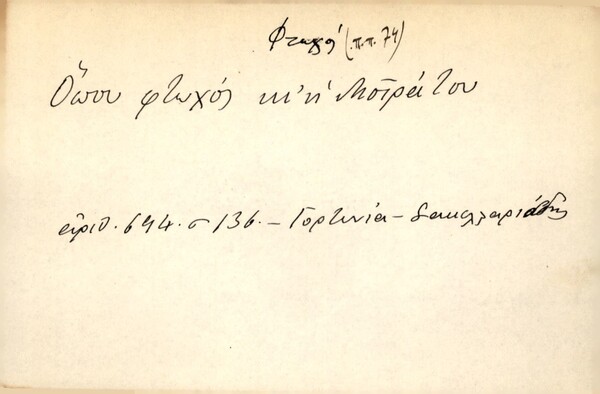 Φτωχός (π.π. 74)
Ὅπου φτωχός κι' ἡ μοῖρά του
ἀριθ. 694. σ 136. – Γορτυνία – Σακελλαριάδης